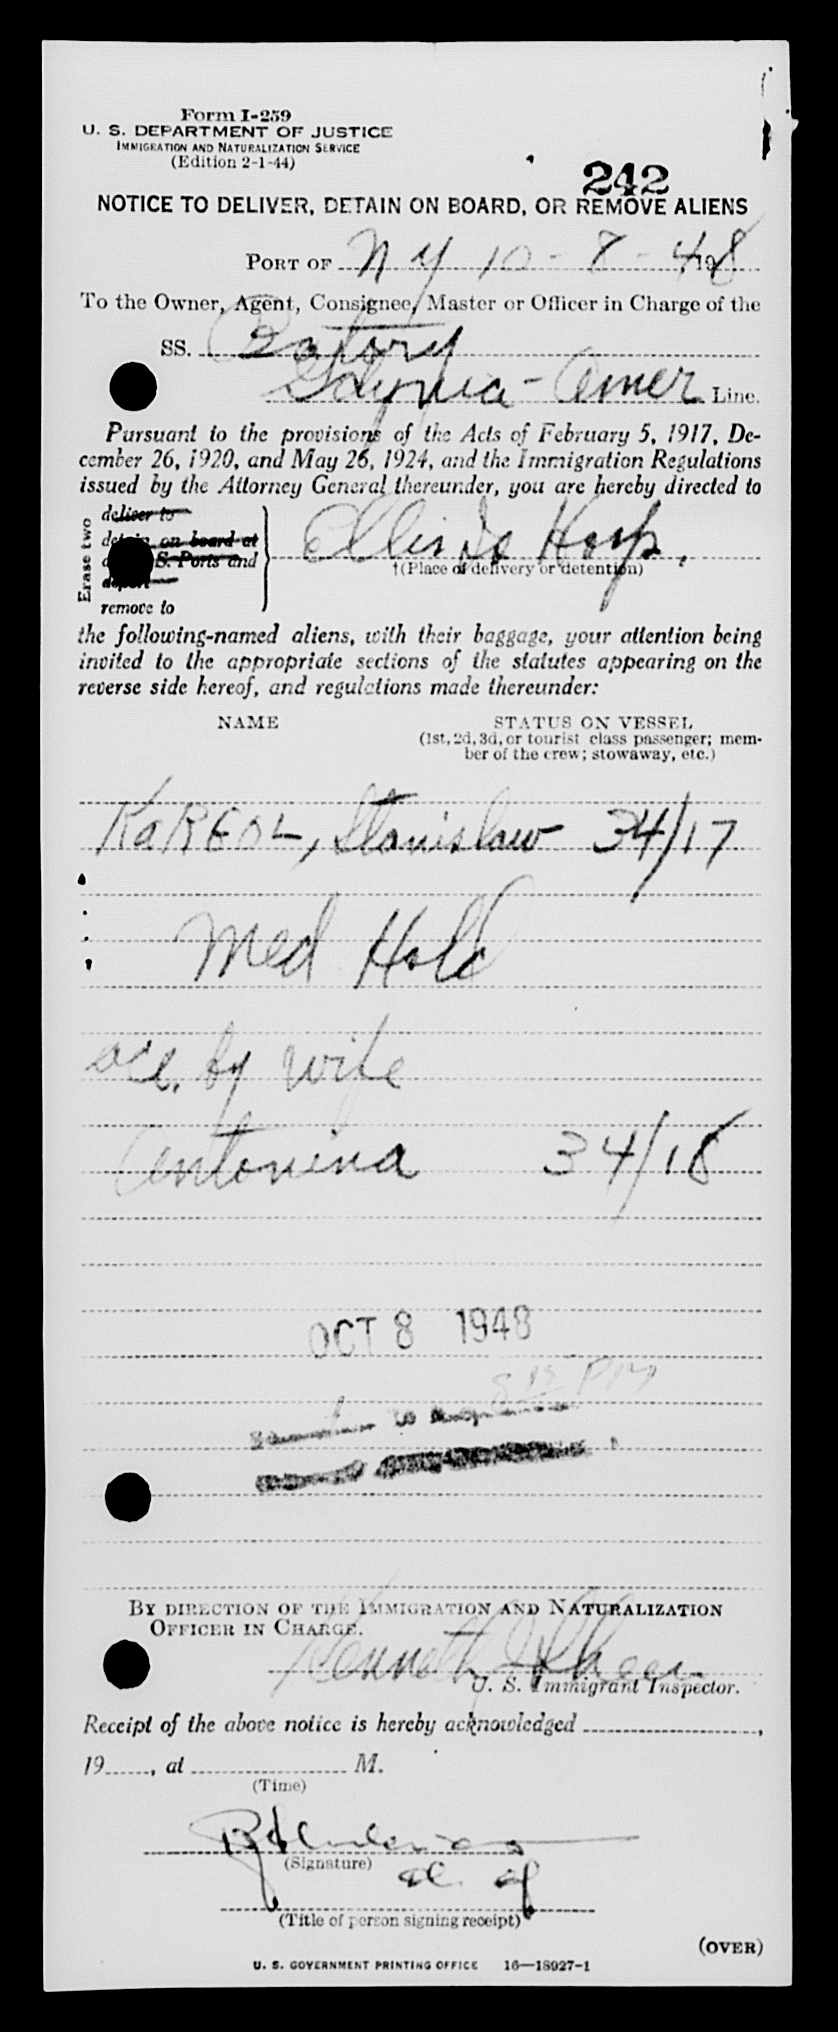 Form I-259
U. S. DEPARTMENT OF JUSTICE
IMMIGRATION AND NATURALIZATION SERVICE
(Edition 2-1-44)
242
NOTICE TO DELIVER, DETAIN ON BOARD, OR REMOVE ALIENS
PORT OF NY 10-8-48 19
To the Owner, Agent, Consignee, Master or Officer in Charge of the
SS. Batory
Gdynia-Amer Line.
Pursuant to the provisions of the Acts of February 5, 1917, De-
cember 26, 1920, and May 26, 1924, and the Immigration Regulations
issued by the Attorney General thereunder, you are hereby directed to
Erase two
deliver to
detain on board at
S. Ports and
deport
remove to
Ellis Is Hosp.
†(Place of delivery or detention)
the following-named aliens, with their baggage, your attention being
invited to the appropriate sections of the statutes appearing on the
reverse side hereof, and regulations made thereunder:
NAME STATUS ON VESSEL
(1st, 2d, 3d, or tourist class passenger; mem-
ber of the crew; stowaway, etc.)
KAREOL, Stanislaw 34/17
Med Hold
acc. by wife
Antonina 34/18
OCT 8 1948
PM
BY DIRECTION OF THE IMMIGRATION AND NATURALIZATION
OFFICER IN CHARGE.
Kenneth
U. S. Immigrant Inspector.
Receipt of the above notice is hereby acknowledged ,
19 , at M.
(Time)
(Signature)
(Title of person signing receipt)
(OVER)
U. S. GOVERNMENT PRINTING OFFICE 16—18927-1